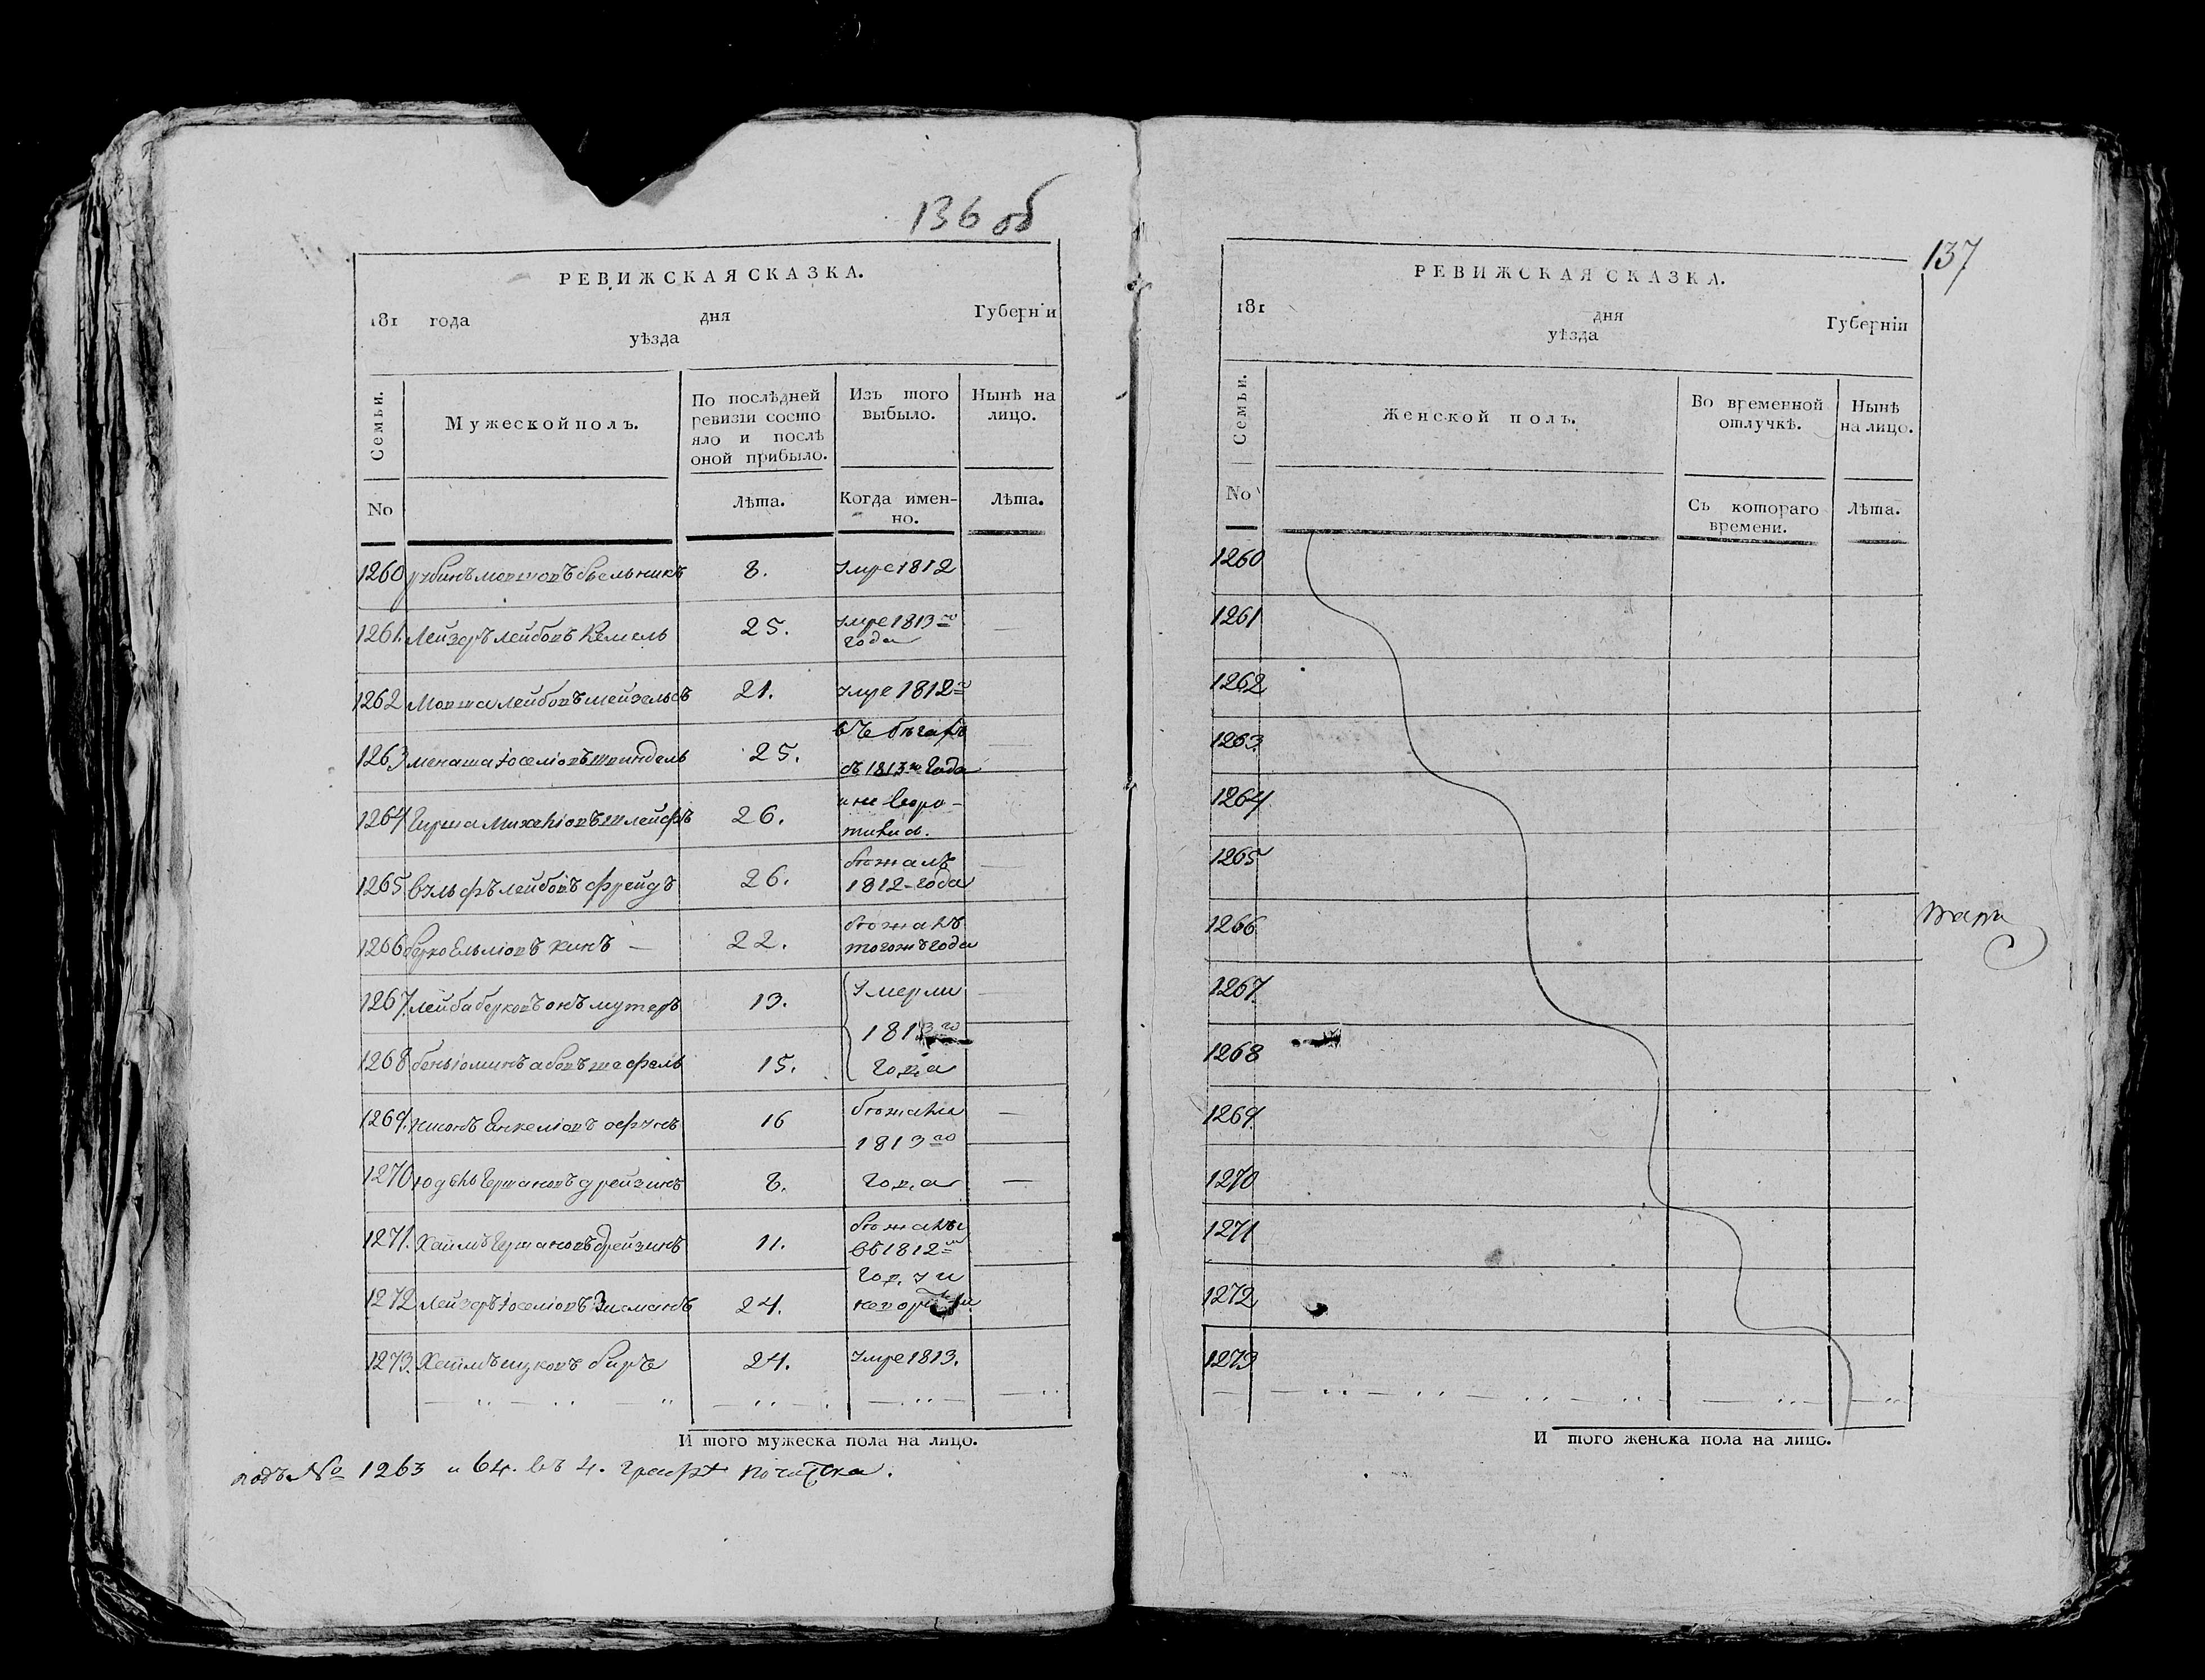 136 об
РЕВИЖСКАЯ СКАЗКА.
181 года дня Губерніи
уѣзда
Семьи.
Мужеской полъ.
По послѣдней ревизіи состояло и послѣ оной прибыло.
Изъ того выбыло.
Нынѣ на лицо.
No
Лѣта.
Когда именно.
Лѣта.
1260 рубинъ мовшовъ 8. умре 1812
1261. Лейзеръ лейбовъ Кемель 25. умре 1813го года
1262 Мовша лейбовъ мейзельсъ 21. умре 1812го
1263 менаша іоселіовъ шпиндель 25. въ бѣгахъ съ 1813го года
1264 Гирша Михеліовъ шлейферъ 26. и не воротились.
1265 вульфъ лейбовъ фрейдъ 26. бѣжалъ 1812 года
1266 берко Ельміовъ кинъ — 22. бѣжалъ тогожъ года
1267. лейба берковъ 13. умерли
1268 беньюминъ абовъ 15. 1813го года
1269. Янкеліовъ 16 бѣжали 1813го
1270 юдель Гершановъ дрейзинъ 8. года
1271. Хаимъ Гершановъ дрейзинъ 11. бѣжалъ въ 1812м
1272 Лейзеръ іоселіовъ 24. году и
1273. Хаимъ ицковъ биръ 24. умре 1813.
И того мужеска пола на лицо.
подъ № 1263 и 64. въ 4. графѣ почистка.
137
РЕВИЖСКАЯ СКАЗКА.
181 дня Губерніи
уѣзда
Семьи.
Женской полъ.
Во временной отлучкѣ.
Нынѣ на лицо.
No
Съ котораго времени.
Лѣта.
1260
1261
1262
1263
1264
1265
1266
1267
1268
1269
1270
1271
1272
1273
И того женска пола на лицо.